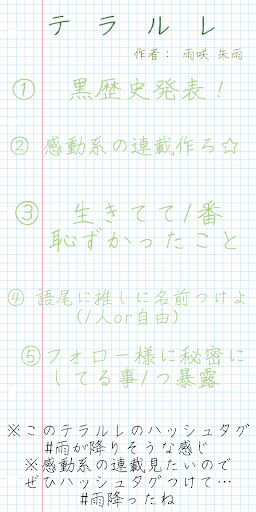 テラルレ
作者： 雨咲 朱雨
① 黒歴史発表！
② 感動系の連載作ろ☆
③ 生きてて1番
恥ずかったこと
④ 語尾に推しに名前つけよ
(1人or自由)
⑤フォロー様に秘密に
してる事1つ暴露
※このテラルレのハッシュタグ
#雨が降りそうな感じ
※感動系の連載見たいので
ぜひハッシュタグつけて…
#雨降ったね